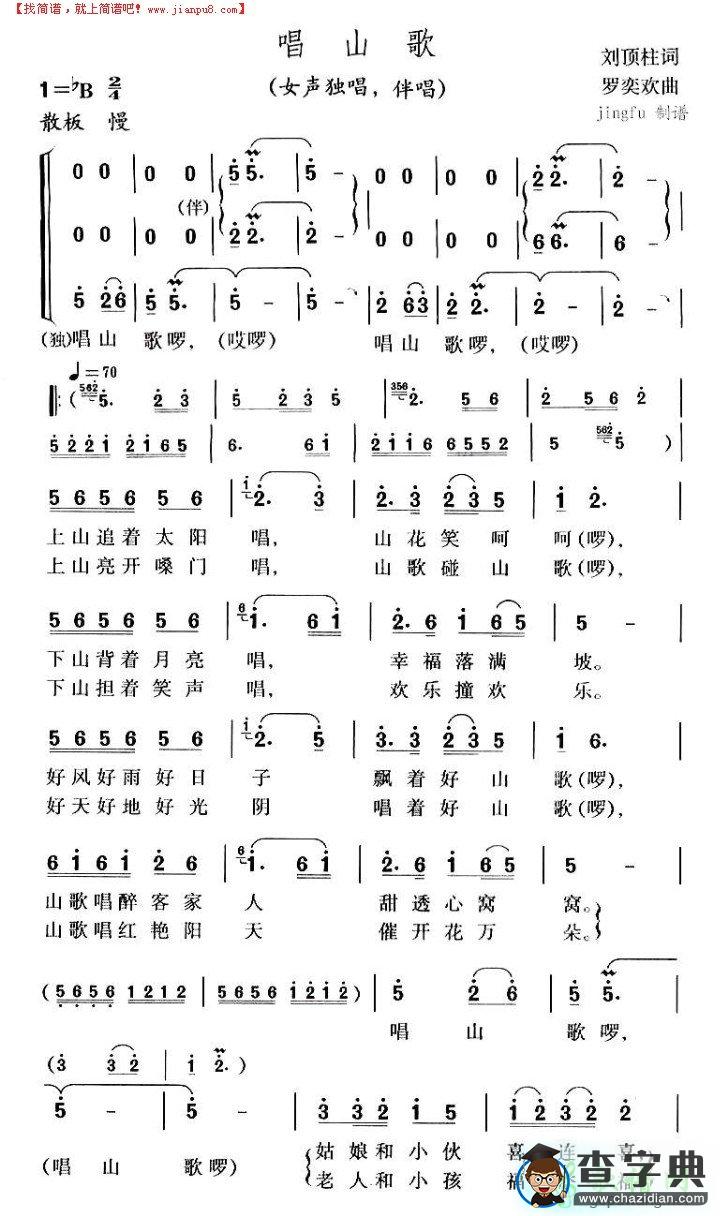 【找简谱，就上简谱吧！www.jianpu8.com】
唱 山 歌
刘顶柱词
1=♭B 2/4
(女声独唱，伴唱)
罗奕欢曲
散板 慢
jingfu 制谱
0 0 | 0 0 | 5 5. | 5 - | 0 0 | 0 0 | 2 2. | 2 -
(伴)
0 0 | 0 0 | 2 2. | 2 - | 0 0 | 0 0 | 6 6. | 6 -
5 26 | 5 5. | 5 - | 5 - | 2 63 | 2 2. | 2 - | 2 -
(独)唱山 歌啰，(哎啰) 唱山 歌啰，(哎啰)
♩=70
(562 5. 2 3 | 5 2 3 5 | 356 2. 5 6 | 2 5 6 2
5 2 2 1 2 1 6 5 | 6. 6 1 | 2 1 1 6 6 5 5 2 | 5 562 5 )
5 6 5 6 5 6 5 6 | 1 2. 3 | 2. 3 2 3 6 5 | 1 2.
上山追着太阳 唱， 山花笑呵 呵(啰)，
上山亮开嗓门 唱， 山歌碰山 歌(啰)，
5 6 5 6 5 6 5 6 | 6 1. 6 1 | 2. 6 1 6 5 | 5 -
下山背着月亮 唱， 幸福落满 坡。
下山担着笑声 唱， 欢乐撞欢 乐。
5 6 5 6 5 6 5 6 | 1 2. 5 | 3. 3 2 3 5 | 1 6.
好风好雨好日 子 飘着好山 歌(啰)，
好天好地好光 阴 唱着好山 歌(啰)，
6 1 6 1 2 6 | 6 1. 6 1 | 2. 6 1 6 5 | 5 -
山歌唱醉客家 人 甜透心窝 窝。
山歌唱红艳阳 天 催开花万 朵。
(5 6 5 6 1 2 1 2 | 5 6 5 6 1 2 1 2) | 5 2 6 | 5 5.
唱 山 歌 啰，
(3 3 2 | 1 2. )
5 - | 5 - | 3 3 2 1 5 | 1 2 3 2 2
(唱 山 歌啰) 姑娘和小伙 喜 连 喜，
老人和小孩 福
查字典
www.chazidian.com